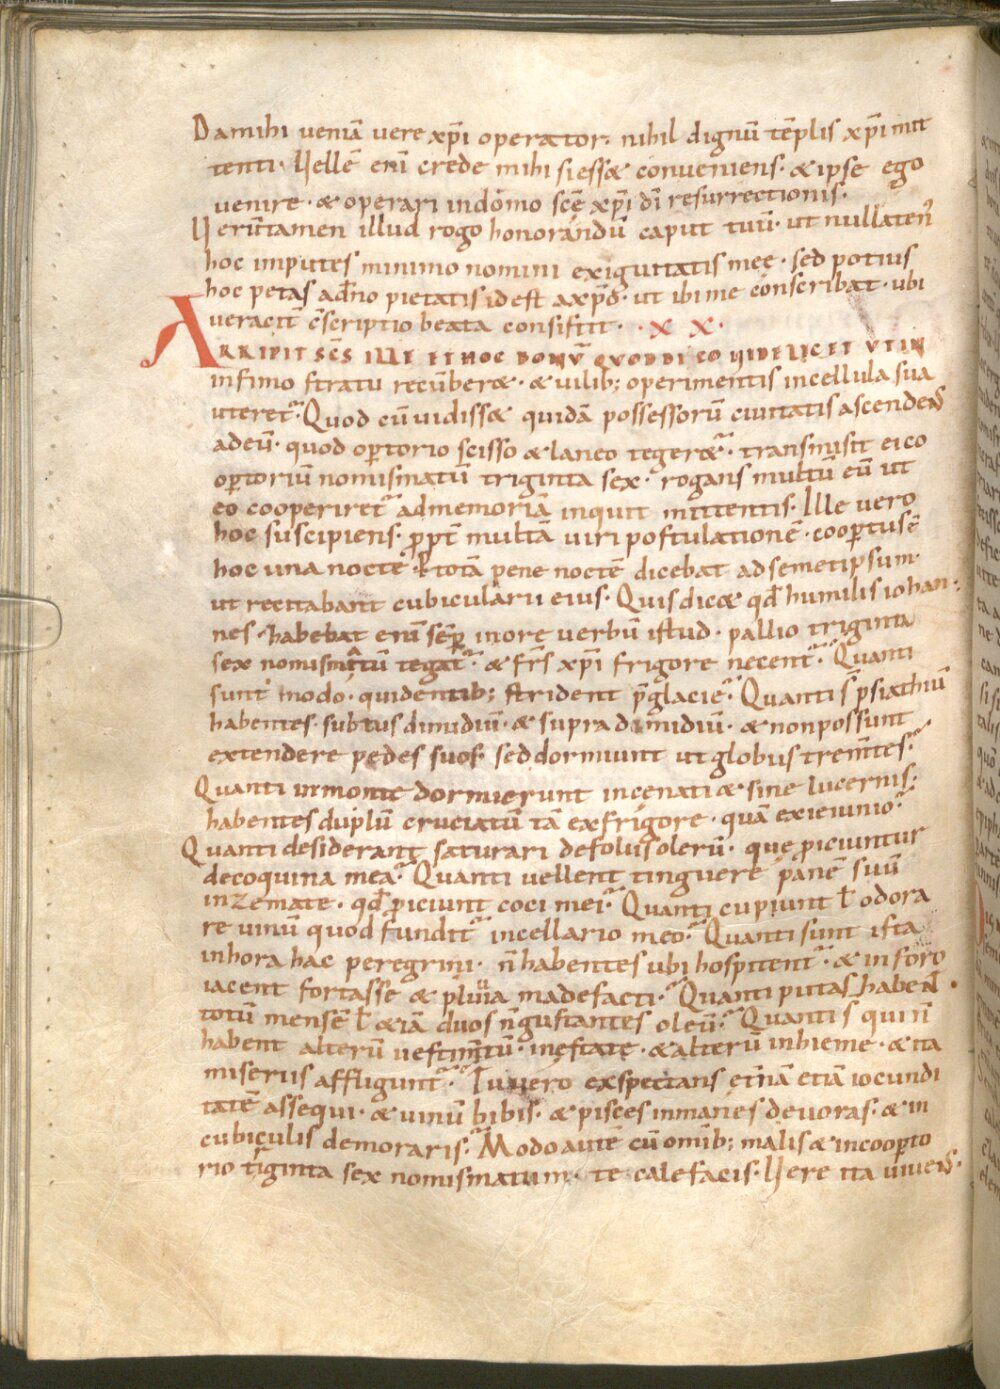 Damihi veniā vere xp̄i operator· nihil dignū tēplis xp̄i mit
tenti· Vellē eni crede mihi si essæ conveniens· & ipse ego
venire· & operari indomo scē xp̄i dī resurrectionis·
Verūtamen illud rogo honorandū caput tuū· ut nullaten᾽
hoc imputes minimo nomini exiguitatis meę· sed potius
hoc petas ad̄no pietatis id est a xp̄o· ut ibi me conscribat· ubi
veracit̄ c̄scriptio beata consistit· · X X ·
ARRIPIT SC̄S ILLE ET HOC BONV̄ QVOD DICO VIDELICET VT IN
infimo stratu recūberæ· & vilib; operimentis incellula sua
uteret᾽ Quod cū vidissæ quidā possessorū civitatis ascendens
adeū· quod op̄torio scisso & laneo tegeræ᾽· transmisit ei co
op̄toriū nomismatū triginta sex· rogans multū eū ut
eo cooperiret᾽ admemoriā inquit mittentis· Ille vero
hoc suscipiens· ꝓpt̄ multā viri postulationē· coop̄tus ē
hoc una nocte· & totā pene noctē dicebat ad semetipsum·
ut recitabant cubicularii eius· Quis dicæ qd̄ humilis iohan·
nes· habebat eni sēp̄ inore verbū istud· pallio triginta
sex nomismatū tegat᾽· & fr̄s xp̄i frigore necent᾽· Quanti
sunt modo· qui dentib; strident p̄ glacie· Quanti s̄ psiathiū
habentes· subtus dimidiū· & supra dimidiū· & non possunt
extendere pedes suos sed dormiunt ut globus trem̄tes·
Quanti inmonte dormierunt incenati & sine lucernis·
habentes duplū cruciatū tā exfrigore· quā exieiunio·
Quanti desiderant saturari defoliis olerū· quę ꝓiciuntur
decoquina mea· Quanti vellent tinguere panē suū
inzemate· qd̄ ꝓiciunt coci mei· Quanti cupiunt ł odora
re vinū quod fundit᾽ incellario meo· Quanti sunt ista
inhora hac peregrini· n̄ habentes ubi hospitent᾽· & in foro
iacent fortasse & pluvia madefacti· Quanti putas habent
totū mensē ł &iā duos n̄ gustantes oleū· Quanti s̄ qui n̄
habent alterū vestimtū· inęstate· & alterū inhieme· & ita
miseriis affligunt᾽· Tu vero exspectans et̄nā etiā iocundi
tatē assequi· & vinū bibis· & pisces inmanes devoras· & in
cubiculis demoraris· Modo autē cū omīb; malis & incoop̄to
rio triginta sex nomismatum· te calefacis· Vere ita vivens·